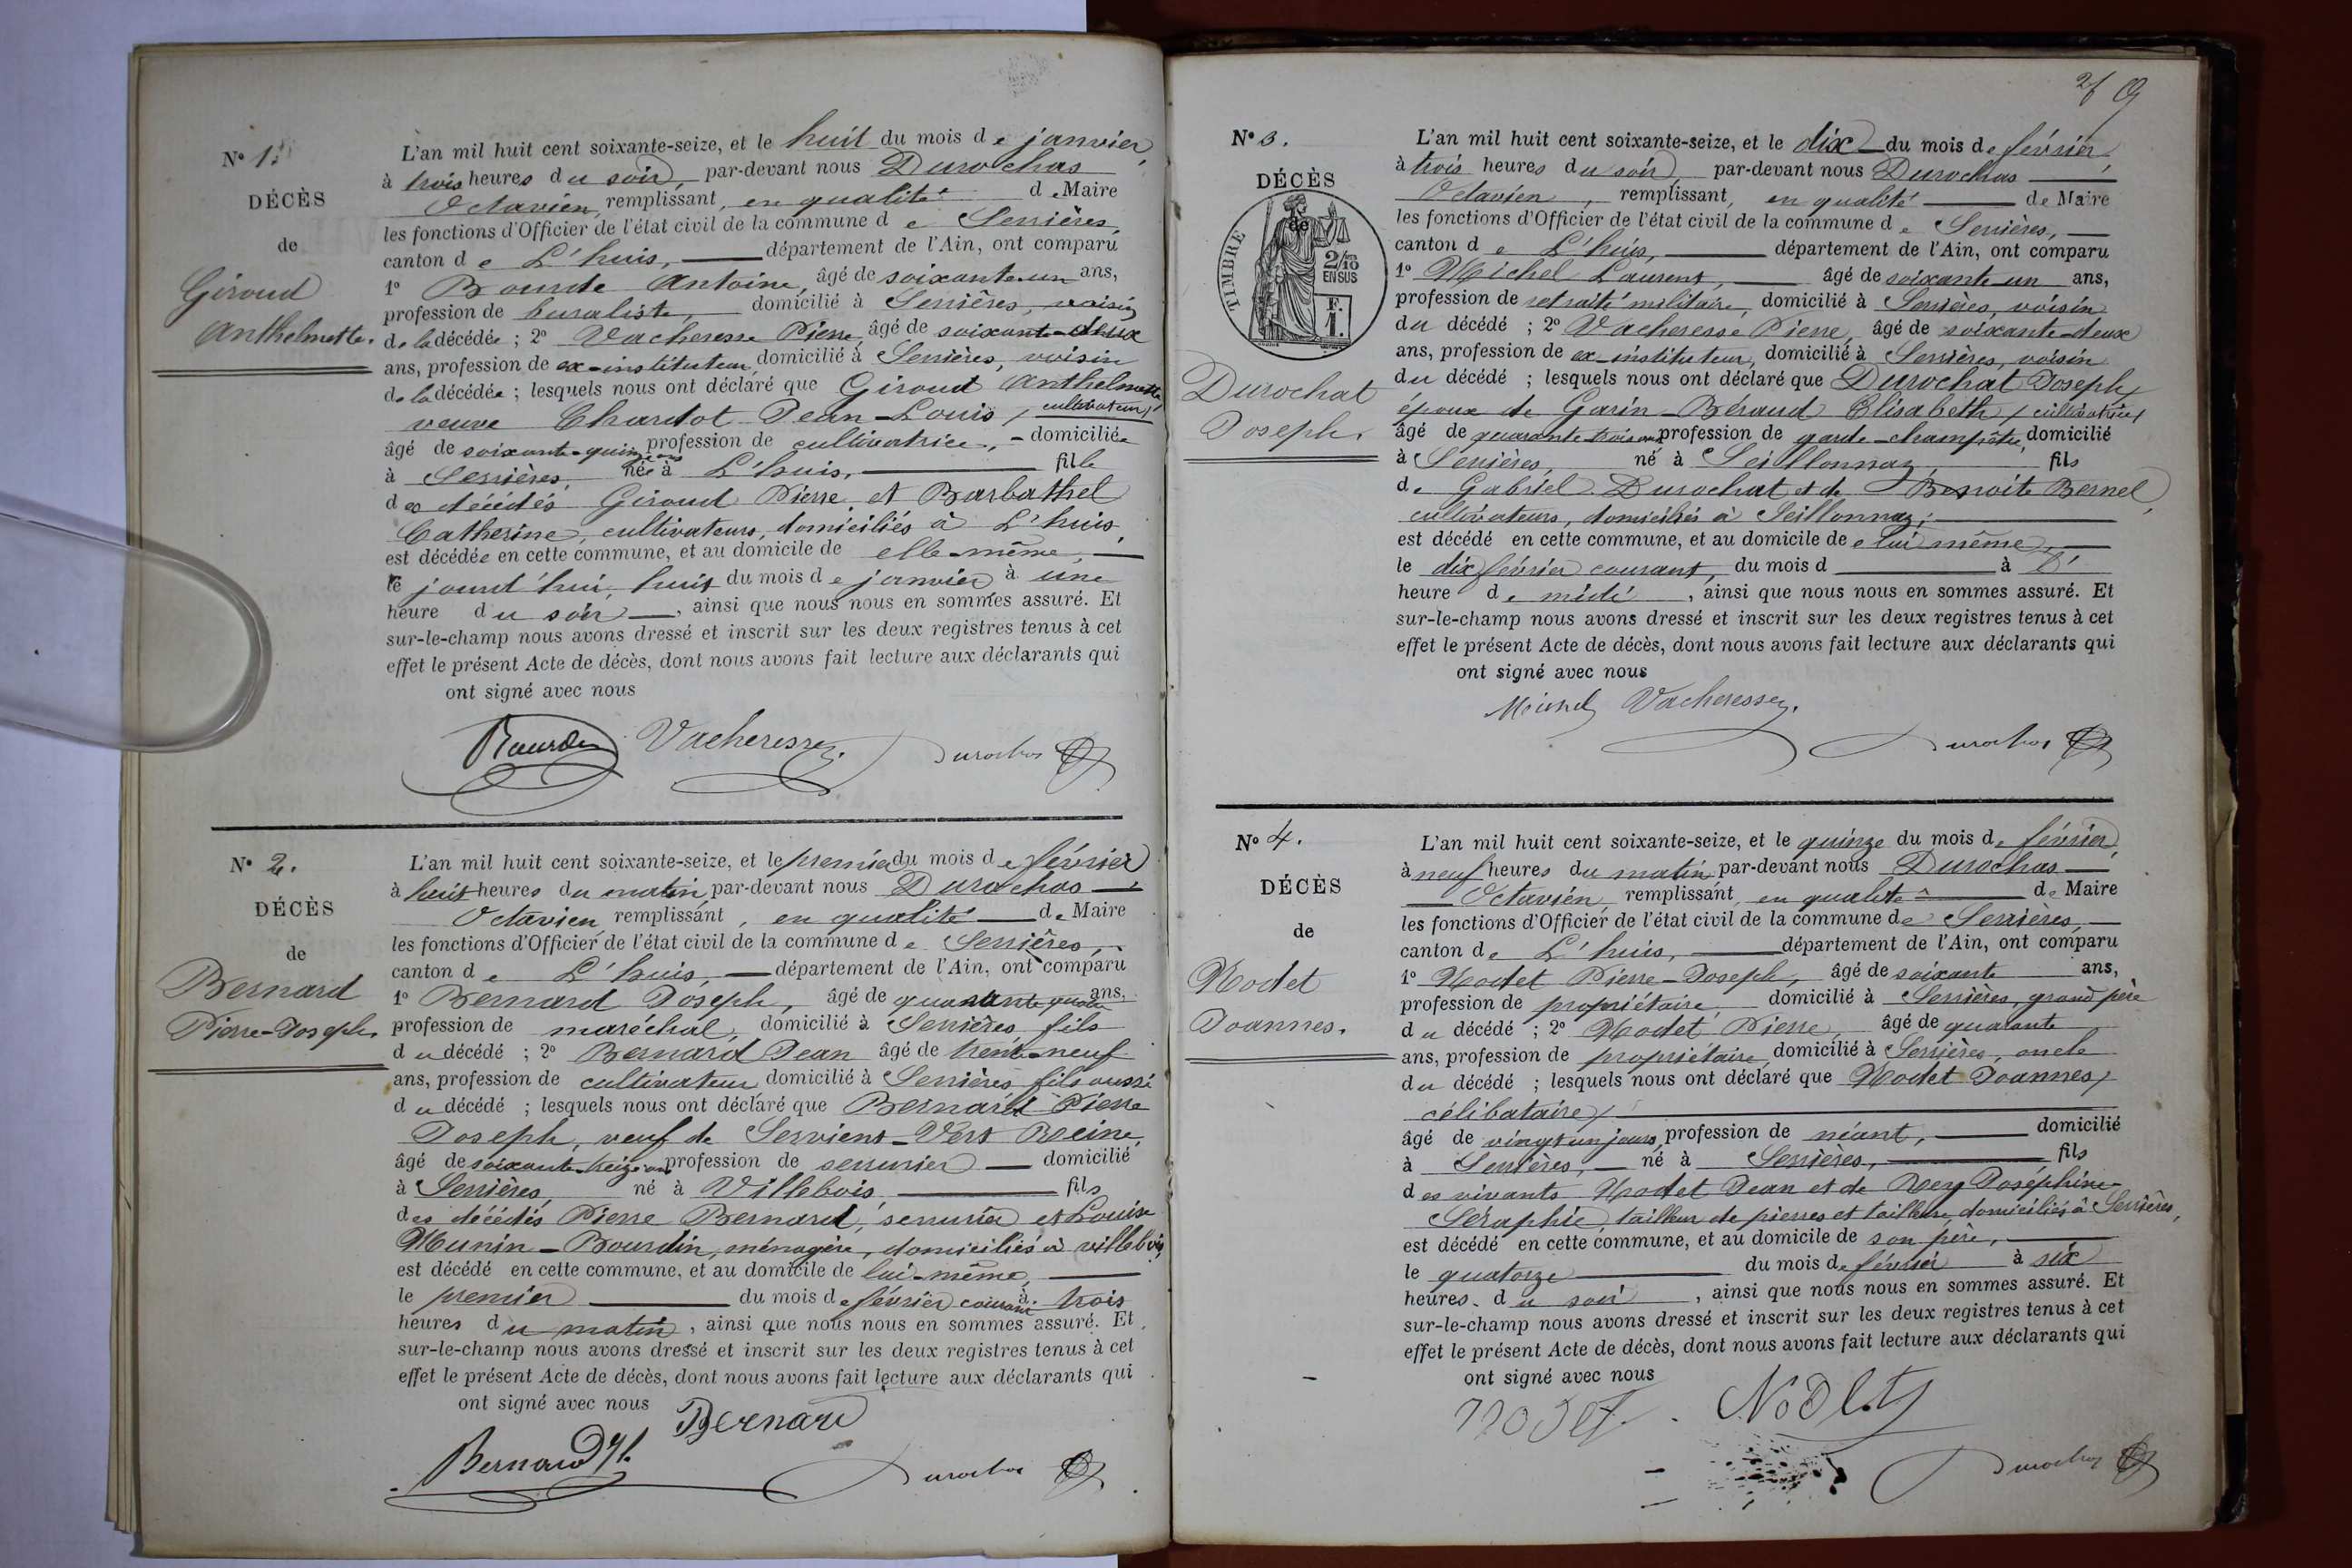 N° 1.
DÉCÈS
de
Giroud
Anthelmette.
L'an mil huit cent soixante-seize, et le huit du mois de janvier,
à trois heures du soir, par-devant nous Durochas
Octavien, remplissant, en qualité de Maire
les fonctions d'Officier de l'état civil de la commune de Serrières,
canton de L'huis, département de l'Ain, ont comparu
1° Bourde Antoine, âgé de soixante-un ans,
profession de buraliste, domicilié à Serrières, voisin
de la décédée ; 2° Vacheresse Pierre, âgé de soixante-deux
ans, profession de ex-instituteur, domicilié à Serrières, voisin
de la décédée ; lesquels nous ont déclaré que Giroud Anthelmette
veuve Chardot Jean-Louis, cultivateur,
âgé de soixante-quinze ans profession de cultivatrice, domiciliée
à Serrières, née à L'huis, fille
des décédés Giroud Pierre et Barbathel
Catherine, cultivateurs, domiciliés à L'huis,
est décédée en cette commune, et au domicile de elle-même,
le jourd'hui, huit du mois de janvier à une
heure du soir, ainsi que nous nous en sommes assuré. Et
sur-le-champ nous avons dressé et inscrit sur les deux registres tenus à cet
effet le présent Acte de décès, dont nous avons fait lecture aux déclarants qui
ont signé avec nous
Bourde Vacheresse Durochas
N° 2.
DÉCÈS
de
Bernard
Pierre-Joseph.
L'an mil huit cent soixante-seize, et le premier du mois de février
à huit heures du matin, par-devant nous Durochas
Octavien, remplissant, en qualité de Maire
les fonctions d'Officier de l'état civil de la commune de Serrières,
canton de L'huis, département de l'Ain, ont comparu
1° Bernard Joseph, âgé de quarante-quatre ans,
profession de maréchal, domicilié à Serrières fils
du décédé ; 2° Bernard Jean âgé de trente-neuf
ans, profession de cultivateur domicilié à Serrières fils aussi
du décédé ; lesquels nous ont déclaré que Bernard Pierre
Joseph, veuf de Servient-Vert Reine,
âgé de soixante-treize ans profession de serrurier domicilié
à Serrières, né à Villebois, fils
des décédés Pierre Bernard, serrurier et Louise
Munin-Bourdin, ménagère, domiciliés à villebois,
est décédé en cette commune, et au domicile de lui-même,
le premier du mois de février courant à trois
heures du matin, ainsi que nous nous en sommes assuré. Et
sur-le-champ nous avons dressé et inscrit sur les deux registres tenus à cet
effet le présent Acte de décès, dont nous avons fait lecture aux déclarants qui
ont signé avec nous
Bernard
Bernard Durochas
N° 3.
DÉCÈS
de
TIMBRE
2/10
EN SUS
F.
1.
Durochat
Joseph.
L'an mil huit cent soixante-seize, et le dix du mois de février,
à trois heures du soir, par-devant nous Durochas
Octavien, remplissant, en qualité de Maire
les fonctions d'Officier de l'état civil de la commune de Serrières,
canton de L'huis, département de l'Ain, ont comparu
1° Michel Laurent, âgé de soixante un ans,
profession de retraité militaire, domicilié à Serrières, voisin
du décédé ; 2° Vacheresse Pierre, âgé de soixante-deux
ans, profession de ex-instituteur, domicilié à Serrières, voisin
du décédé ; lesquels nous ont déclaré que Durochat Joseph,
époux de Garin-Béraud Elisabeth, cultivatrice,
âgé de quarante-trois ans profession de garde-champêtre, domicilié
à Serrières, né à Seillonnaz, fils
de Gabriel Durochat et de Benoite Bernel,
cultivateurs, domiciliés à Seillonnaz;
est décédé en cette commune, et au domicile de lui même,
le dix février courant, du mois d à l'
heure de midi, ainsi que nous nous en sommes assuré. Et
sur-le-champ nous avons dressé et inscrit sur les deux registres tenus à cet
effet le présent Acte de décès, dont nous avons fait lecture aux déclarants qui
ont signé avec nous
Michel Vacheresse.
Durochas
N° 4.
DÉCÈS
de
Nodet
Joannes.
L'an mil huit cent soixante-seize, et le quinze du mois de février,
à neuf heures du matin par-devant nous Durochas
Octavien, remplissant en qualité de Maire
les fonctions d'Officier de l'état civil de la commune de Serrières,
canton de L'huis, département de l'Ain, ont comparu
1° Nodet Pierre-Joseph, âgé de soixante ans,
profession de propriétaire, domicilié à Serrières, grand père
du décédé ; 2° Nodet Pierre, âgé de quarante
ans, profession de propriétaire domicilié à Serrières, oncle
du décédé ; lesquels nous ont déclaré que Nodet Joannes,
célibataire,
âgé de vingt un jours, profession de néant, domicilié
à Serrières, né à Serrières, fils
des vivants Nodet Jean et de Rey Joséphine
Séraphie, tailleur de pierres et tailleuse, domiciliés à Serrières,
est décédé en cette commune, et au domicile de son père,
le quatorze du mois de février à six
heures du soir, ainsi que nous nous en sommes assuré. Et
sur-le-champ nous avons dressé et inscrit sur les deux registres tenus à cet
effet le présent Acte de décès, dont nous avons fait lecture aux déclarants qui
ont signé avec nous
nodet Nodet
Durochas